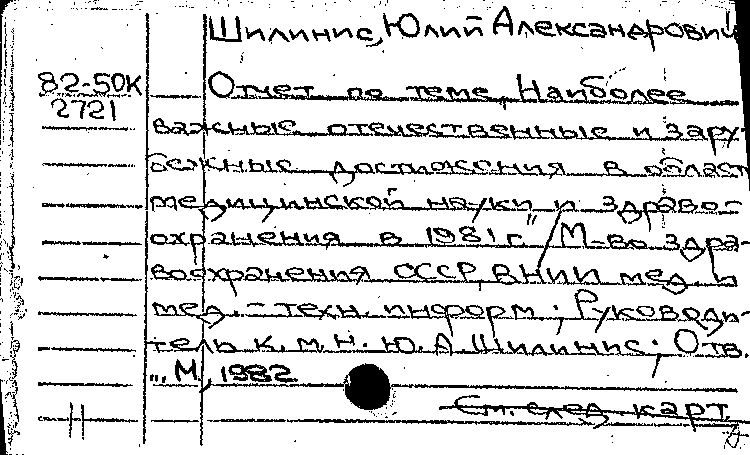 Шилинис, Юлий Александрович
82-50К
2721
Отчет по теме „Наиболее
важные отечественные и зару-
бежные достижения в област
медицинской науки и здраво-
охранения в 1981 г." / М-во здра-
воохранения СССР, ВНИИ мед. и
мед. - техн. информ ; Руководи-
тель к. м. н. Ю. А. Шилинис ; Отв.
... М., 1982
См. след. карт.